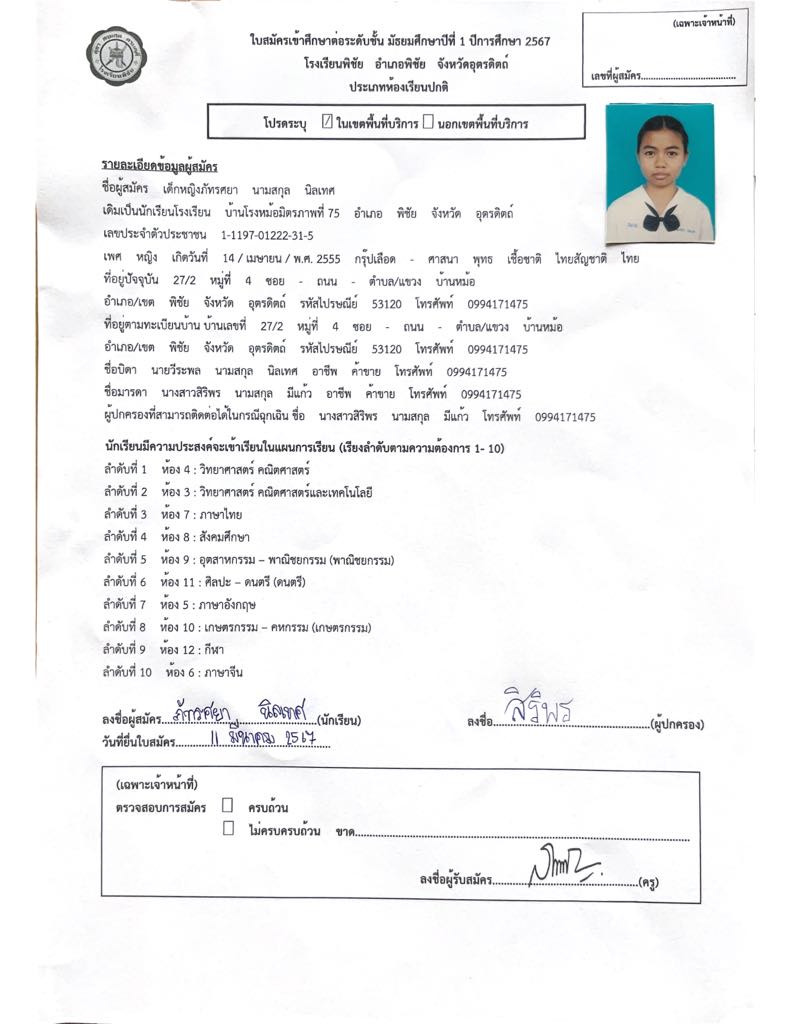 (เฉพาะเจ้าหน้าที่)
เลขที่ผู้สมัคร......................................
ใบสมัครเข้าศึกษาต่อระดับชั้น มัธยมศึกษาปีที่ 1 ปีการศึกษา 2567
โรงเรียนพิชัย อำเภอพิชัย จังหวัดอุตรดิตถ์
ประเภทห้องเรียนปกติ
โปรดระบุ ☑ ในเขตพื้นที่บริการ ☐ นอกเขตพื้นที่บริการ
รายละเอียดข้อมูลผู้สมัคร
ชื่อผู้สมัคร เด็กหญิงภัทรศยา นามสกุล นิลเทศ
เดิมเป็นนักเรียนโรงเรียน บ้านโรงหม้อมิตรภาพที่ 75 อำเภอ พิชัย จังหวัด อุตรดิตถ์
เลขประจำตัวประชาชน 1-1197-01222-31-5
เพศ หญิง เกิดวันที่ 14 / เมษายน / พ.ศ. 2555 กรุ๊ปเลือด - ศาสนา พุทธ เชื้อชาติ ไทยสัญชาติ ไทย
ที่อยู่ปัจจุบัน 27/2 หมู่ที่ 4 ซอย - ถนน - ตำบล/แขวง บ้านหม้อ
อำเภอ/เขต พิชัย จังหวัด อุตรดิตถ์ รหัสไปรษณีย์ 53120 โทรศัพท์ 0994171475
ที่อยู่ตามทะเบียนบ้าน บ้านเลขที่ 27/2 หมู่ที่ 4 ซอย - ถนน - ตำบล/แขวง บ้านหม้อ
อำเภอ/เขต พิชัย จังหวัด อุตรดิตถ์ รหัสไปรษณีย์ 53120 โทรศัพท์ 0994171475
ชื่อบิดา นายวีระพล นามสกุล นิลเทศ อาชีพ ค้าขาย โทรศัพท์ 0994171475
ชื่อมารดา นางสาวสิริพร นามสกุล มีแก้ว อาชีพ ค้าขาย โทรศัพท์ 0994171475
ผู้ปกครองที่สามารถติดต่อได้ในกรณีฉุกเฉิน ชื่อ นางสาวสิริพร นามสกุล มีแก้ว โทรศัพท์ 0994171475
นักเรียนมีความประสงค์จะเข้าเรียนในแผนการเรียน (เรียงลำดับตามความต้องการ 1- 10)
ลำดับที่ 1 ห้อง 4 : วิทยาศาสตร์ คณิตศาสตร์
ลำดับที่ 2 ห้อง 3 : วิทยาศาสตร์ คณิตศาสตร์และเทคโนโลยี
ลำดับที่ 3 ห้อง 7 : ภาษาไทย
ลำดับที่ 4 ห้อง 8 : สังคมศึกษา
ลำดับที่ 5 ห้อง 9 : อุตสาหกรรม – พาณิชยกรรม (พาณิชยกรรม)
ลำดับที่ 6 ห้อง 11 : ศิลปะ – ดนตรี (ดนตรี)
ลำดับที่ 7 ห้อง 5 : ภาษาอังกฤษ
ลำดับที่ 8 ห้อง 10 : เกษตรกรรม – คหกรรม (เกษตรกรรม)
ลำดับที่ 9 ห้อง 12 : กีฬา
ลำดับที่ 10 ห้อง 6 : ภาษาจีน
ลงชื่อผู้สมัคร...ภัทรศยา นิลเทศ...(นักเรียน) ลงชื่อ...สิริพร...(ผู้ปกครอง)
วันที่ยื่นใบสมัคร...11 มีนาคม 2567...
(เฉพาะเจ้าหน้าที่)
ตรวจสอบการสมัคร ☐ ครบถ้วน
☐ ไม่ครบครบถ้วน ขาด......................................
ลงชื่อผู้รับสมัคร......................................(ครู)